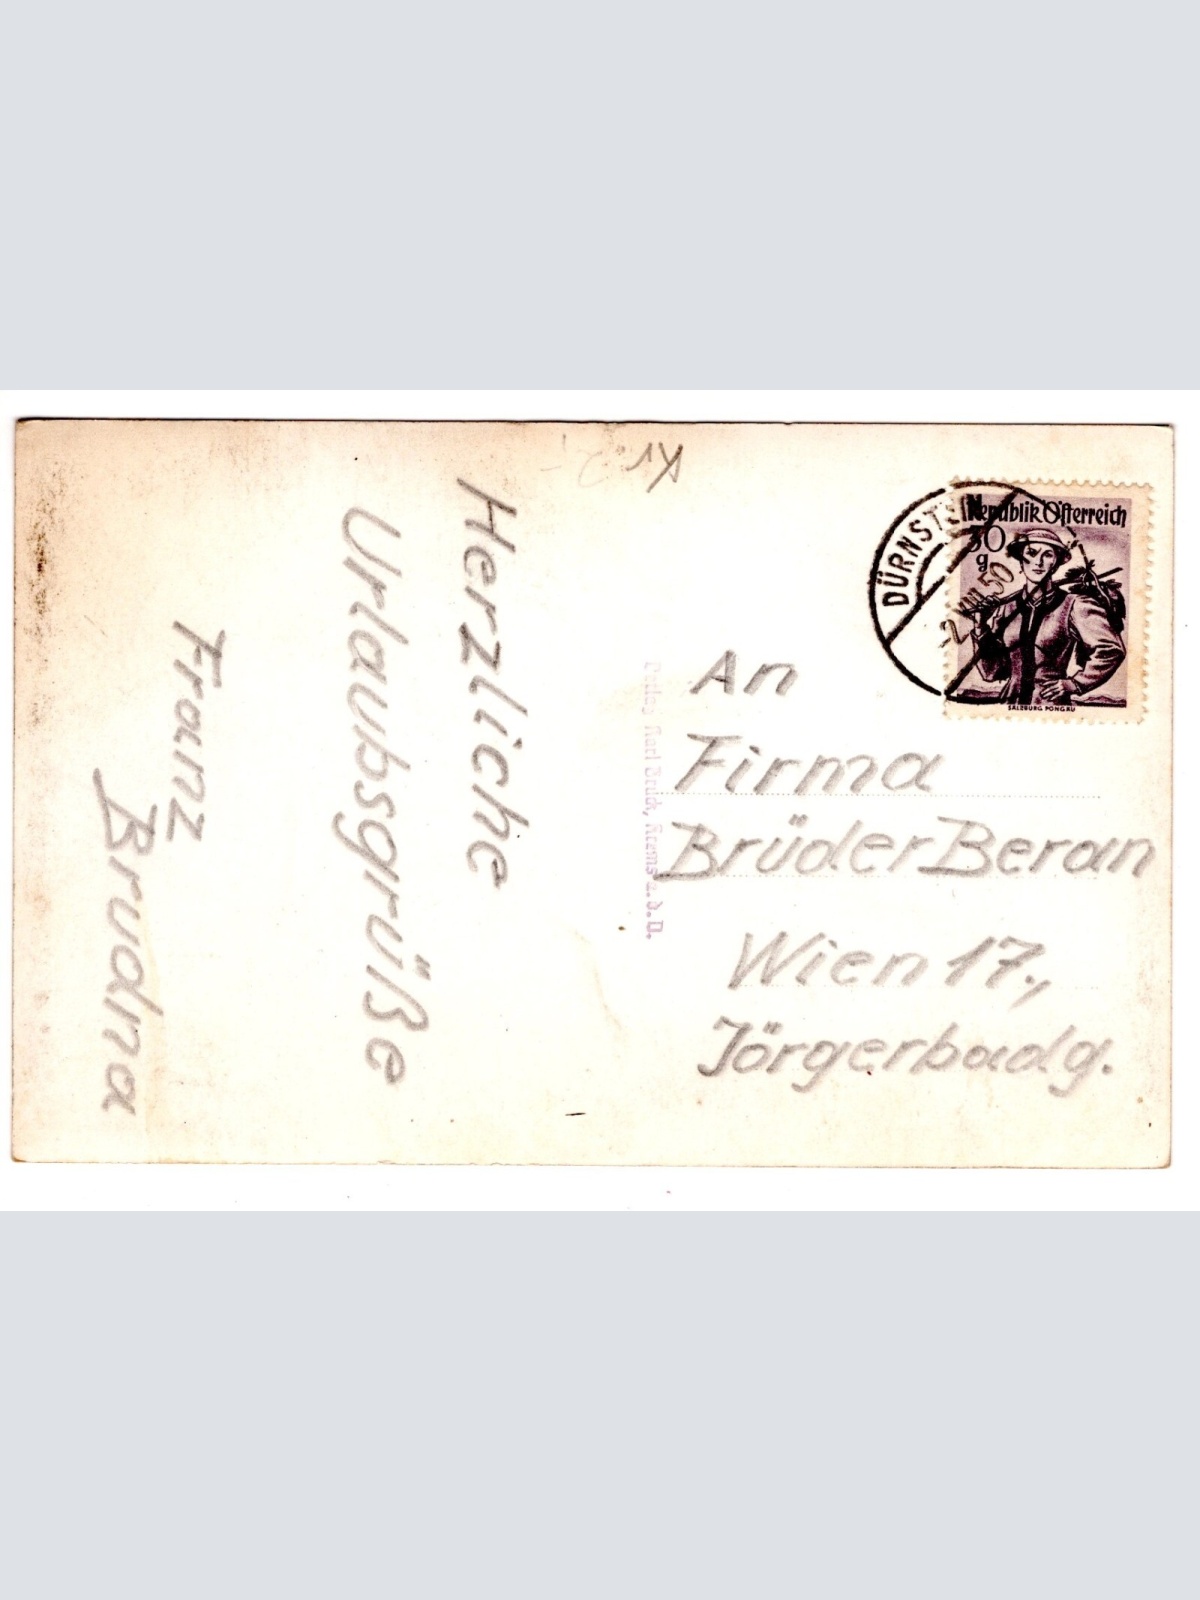 Kr 2-
Herzliche
Urlaubsgrüße
Franz
Brudna
Verlag Karl Bruck, Krems a. d. D.
DÜRNSTEIN
-2.VIII.50
Republik Österreich
30
g
SALZBURG PONGAU
An
Firma
Brüder Beran
Wien 17.,
Jörgerbadg.